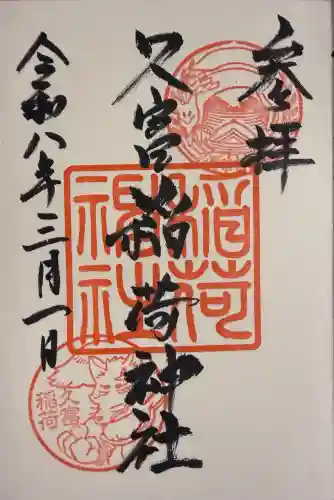 参拝
久富稲荷神社
令和八年三月一日
稲荷
神社
久富
稲荷